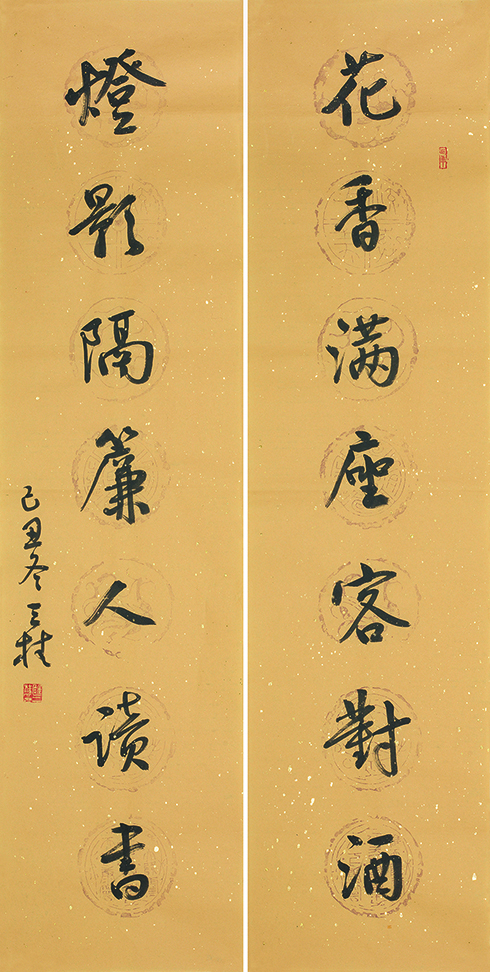 花香满座客對酒
燈影隔簾人讀書
己丑冬